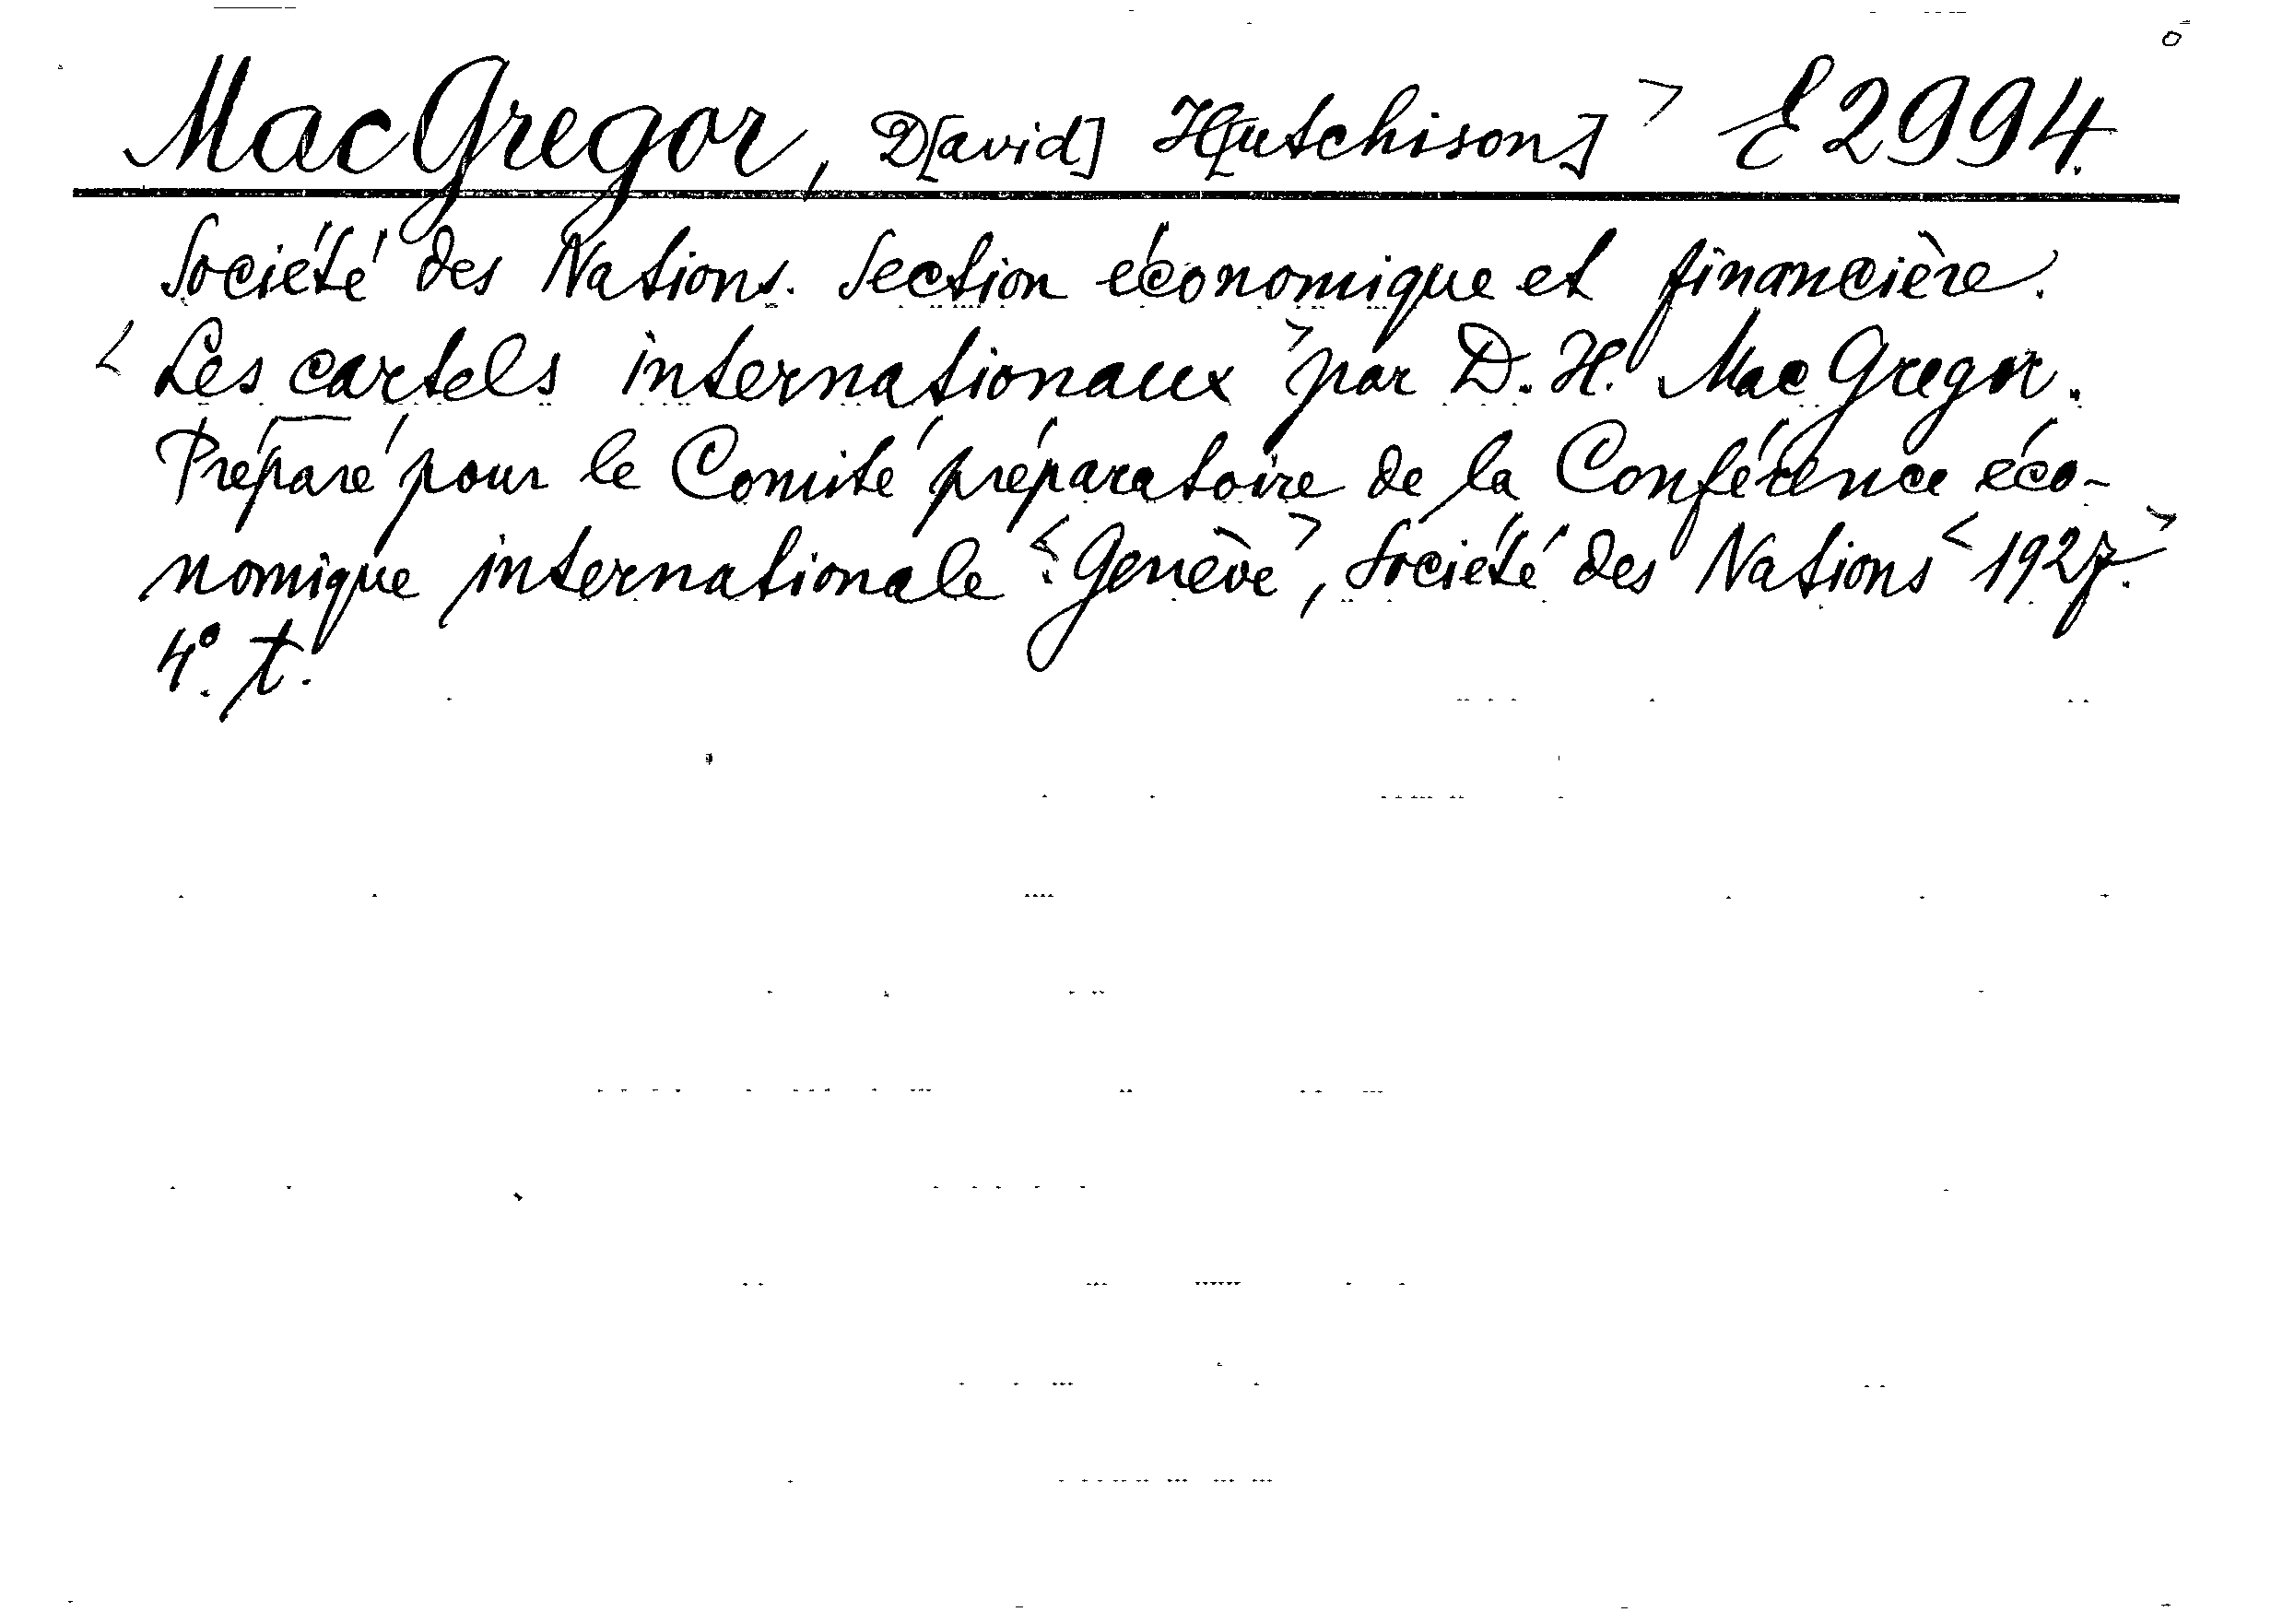 MacGregor, D[avid] H[utchison] > E 2994.
Société des Nations. Section économique et financière.
< Les cartels internationaux > par D. H. MacGregor.
Préparé pour le Comité préparatoire de la Conférence éco-
nomique internationale. < Genève >, Société des Nations < 1927. >
4°. t.